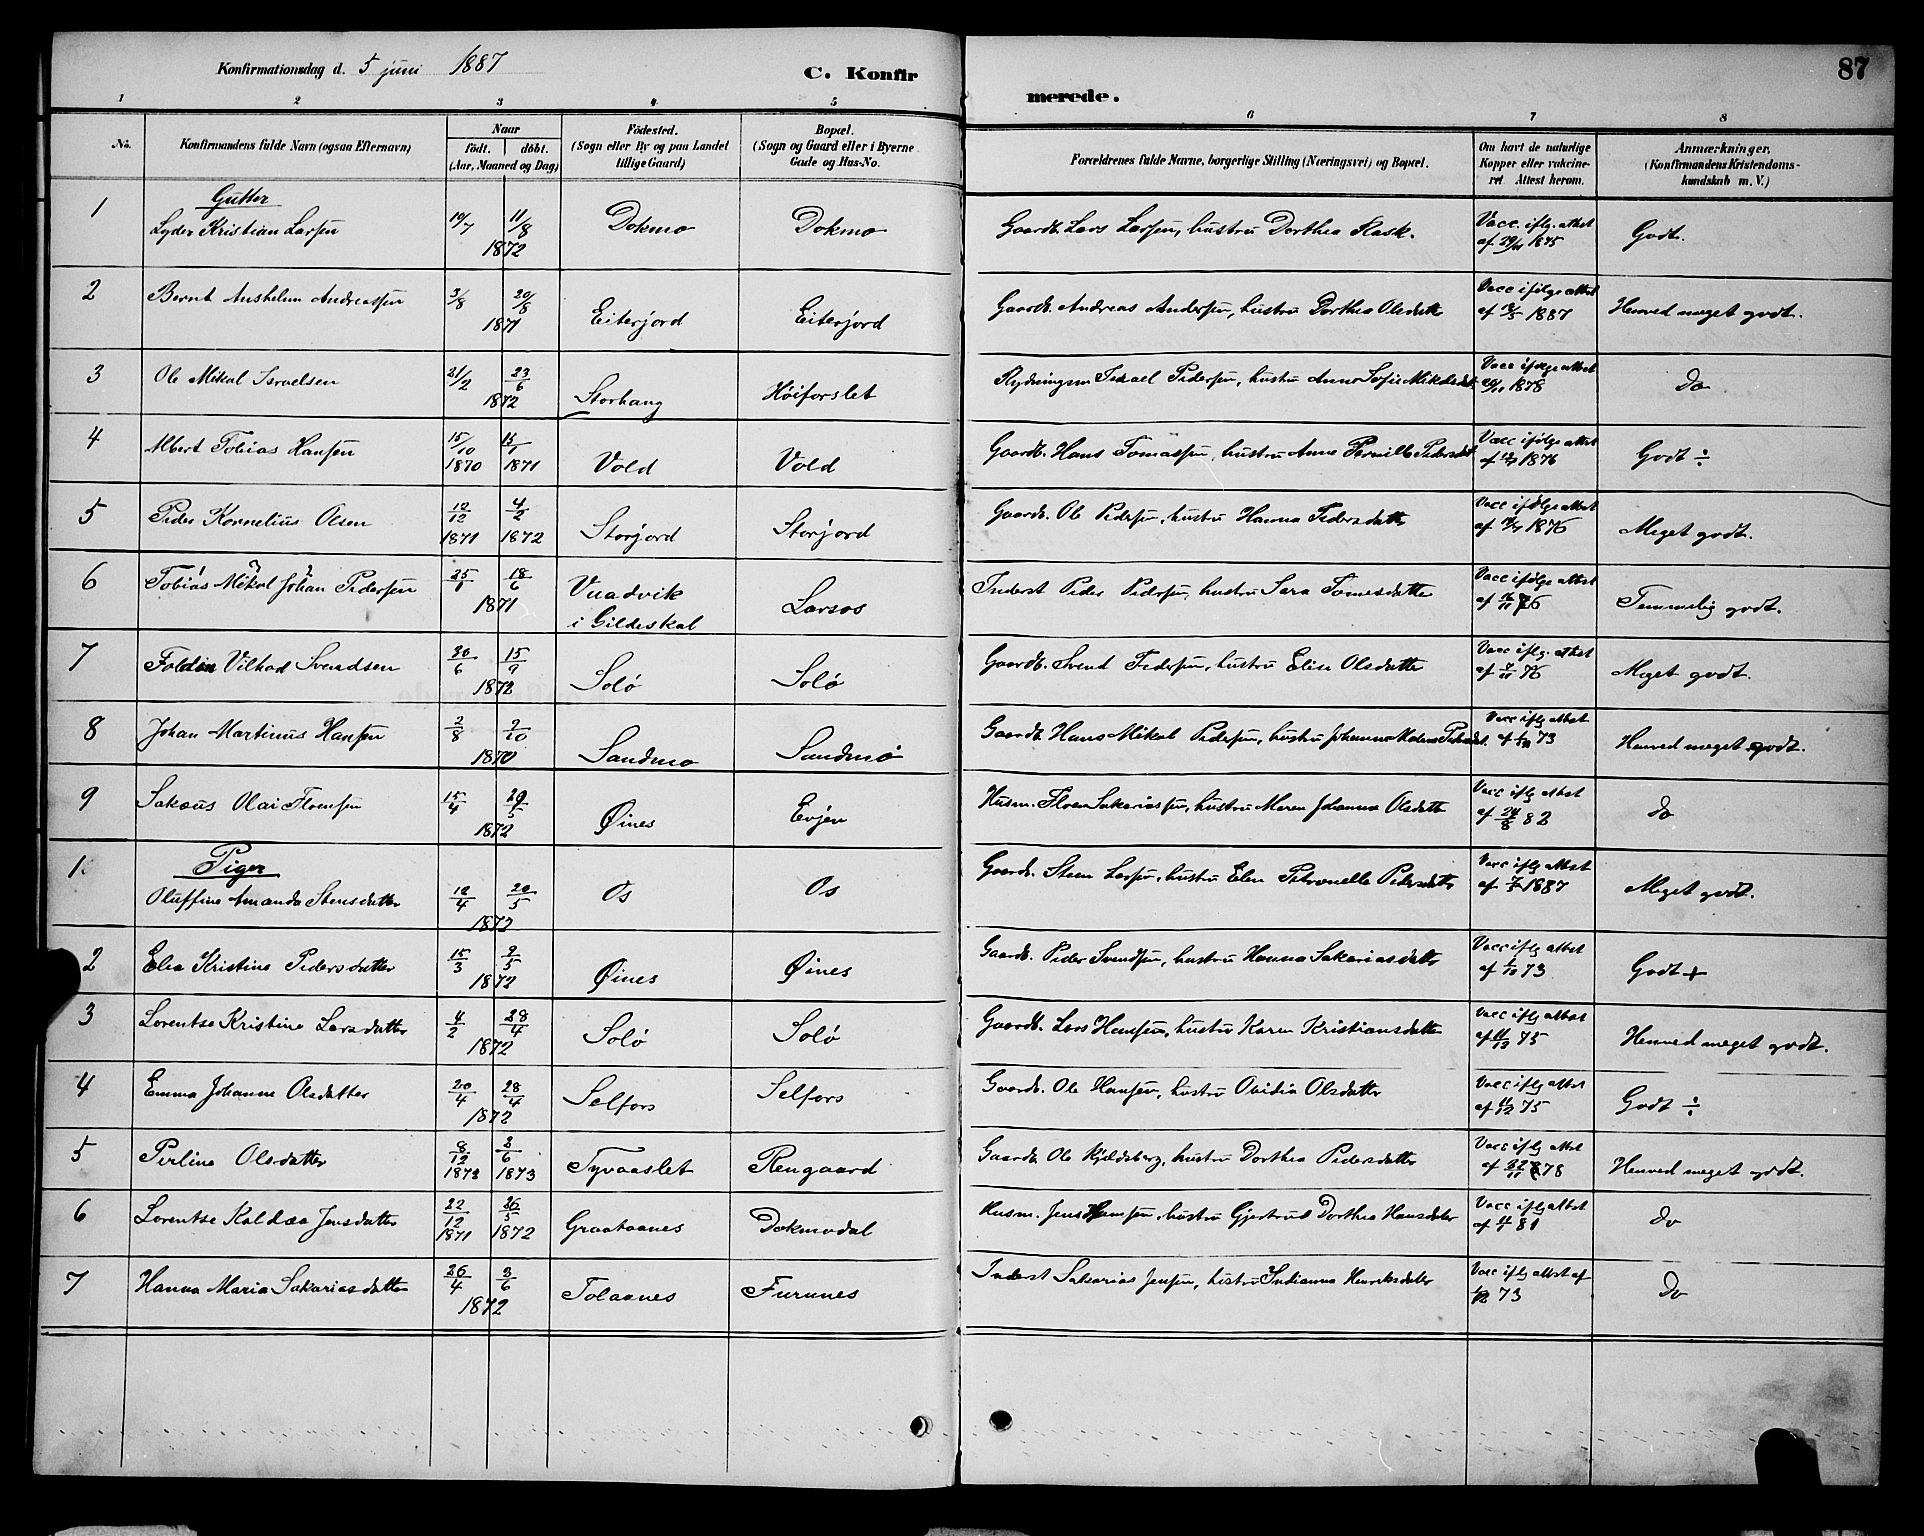 Konfirmationsdag d. 5 juni 1887
C. Konfirmerede.
87
1 2 3 4 5 6 7 8
No. Konfirmandens fulde Navn (ogsaa Efternavn) Naar födt. döbt. (Aar, Maaned og Dag) Födested. (Sogn eller By og paa Landet tillige Gaard) Bopæl. (Sogn og Gaard eller i Byerne Gade og Hus-No. Forældrenes fulde Navne, borgerlige Stilling (Næringsvei) og Bopæl. Om havt de naturlige Kopper eller vakcineret. Attest herom. Anmærkninger, (Konfirmandens Kristendomskundskab m. V.)
Gutter
1 Lyder Kristian Larsen 19/7 11/8 1872 Dokmo Dokmo Gaardb. Lars Larsen, hustru Dorthea Rask. Vacc. iflg. attest af 1875 Godt.
2 Bernt Anshelm Andreassen 3/8 20/8 1871 Eiterjord Eiterjord Gaardb. Andreas Andersen, hustru Dorthea Olsdatt Vacc ifölge attest af 1887 Henved meget godt.
3 Ole Mikal Israelsen 21/2 23/6 1872 Storhaug Höiforslet Rydningsm Israel Pedersen, hustru Anne Sofie Mikalsdat Vacc ifölge attest 1878 do
4 Albert Tobias Hansen 15/10 1870 15/1 1871 Vold Vold Gaardb. Hans Tomassen, hustru Anne Pernille Pedersdat Vacc ifölge attest af 1876 Godt ÷
5 Peder Kornelius Olsen 12/12 1871 4/2 1872 Storjord Storjord Gaardb. Ole Pedersen, hustru Hanna Pedersdatter Vacc ifölge attest af 1876 Meget godt.
6 Tobias Mikal Johan Pedersen 25/ 18/6 1871 Vaadvik i Gildeskal Larsos Inderst Peder Pedersen, hustru Sara Tomesdatter Vacc ifölge attest af 76 Temmelig godt.
7 Foldin Vilhad Svendsen 30/6 15/9 1872 Solö Solö Gaardb. Svend Pedersen, hustru Elise Olsdatter Vacc iflg. attest af 76 Meget godt.
8 Johan Martinus Hansen 2/8 2/10 1870 Sandmo Sandmo Gaardb. Hans Mikal Pedersen, hustru Johanna Vacc iflg attest af 73 Henved meget godt.
9 Sakæus Olai 15/4 20/5 1872 Øines Evjen Husm. hustru Maren Johanna Olsdatter Vacc iflg attest af 24/8 82 do
Piger
1. Oluffine Amanda Stensdatter 12/4 20/5 1872 Os Os Gaardb. Steen Larsen, hustru Elen Petronelle Pedersdatter Vacc iflg attest af 1887 Meget godt.
2 Elea Kristine Pedersdatter 15/3 2/5 1872 Øines Øines Gaardb. Peder Svendsen, hustru Hanna Sakariasdatter Vacc iflg attest af 73 Godt +
3 Lorentse Kristine Larsdatter 4/2 28/4 1872 Solö Solö Gaardb. Lars Hansen, hustru Karen Kristiansdatter Vacc iflg attest af 75 Henved meget godt.
4 Emma Johanne Olsdatter 20/4 28/4 1872 Selfors Selfors Gaardb. Ole Hansen, hustru Ovidia Olsdatter Vacc iflg attest af 75 Godt ÷
5 Perline Olsdatter 8/12 1872 2/6 1873 Tyvaaslet Rengaard Gaardb. Ole Kjeldsberg, hustru Dorthea Pedersdatter Vacc iflg attest af 22/11 78 Henved meget godt.
6 Lorentse Kaldæa Jensdatter 22/12 1871 26/5 1872 Graataanes Dokmodal Husm. Jens Hansen, hustru Gjertrud Dorthea Hansdatter Vacc iflg attest af 81 do
7 Hanna Maria Sakariasdatter 26/4 2/6 1872 Tolaanes Furunes Inderst Sakarias Jensen, hustru Indianna Henriksdatter Vacc iflg attest af 73 Do